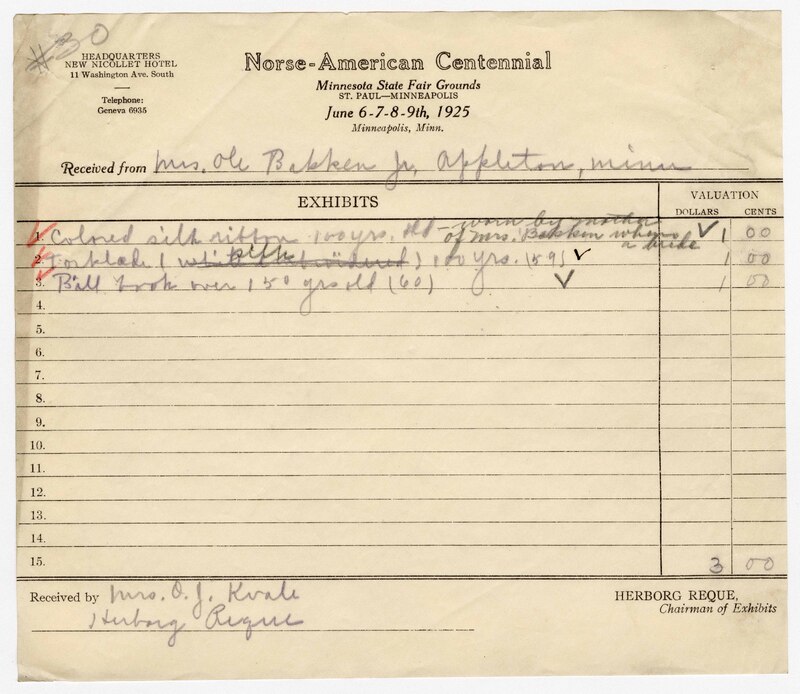 #30
HEADQUARTERS
NEW NICOLLET HOTEL
11 Washington Ave. South
Telephone:
Geneva 6935
Norse-American Centennial
Minnesota State Fair Grounds
ST. PAUL—MINNEAPOLIS
June 6-7-8-9th, 1925
Minneapolis, Minn.
Received from Mrs. Ole Bakken Jr, Appleton, Minn
EXHIBITS
VALUATION
DOLLARS CENTS
1. Colored silk ribbon 100 yrs. old – worn by mother ✓ 1 00
of Mrs. Bakken when
a bride
2. Forklæde (silk) 100 yrs. (59) ✓ 1 00
3. Bill book over 150 yrs old (60) ✓ 1 00
4.
5.
6.
7.
8.
9.
10.
11.
12.
13.
14.
15. 3 00
Received by Mrs. O. J. Kvale
Herborg Reque
HERBORG REQUE,
Chairman of Exhibits